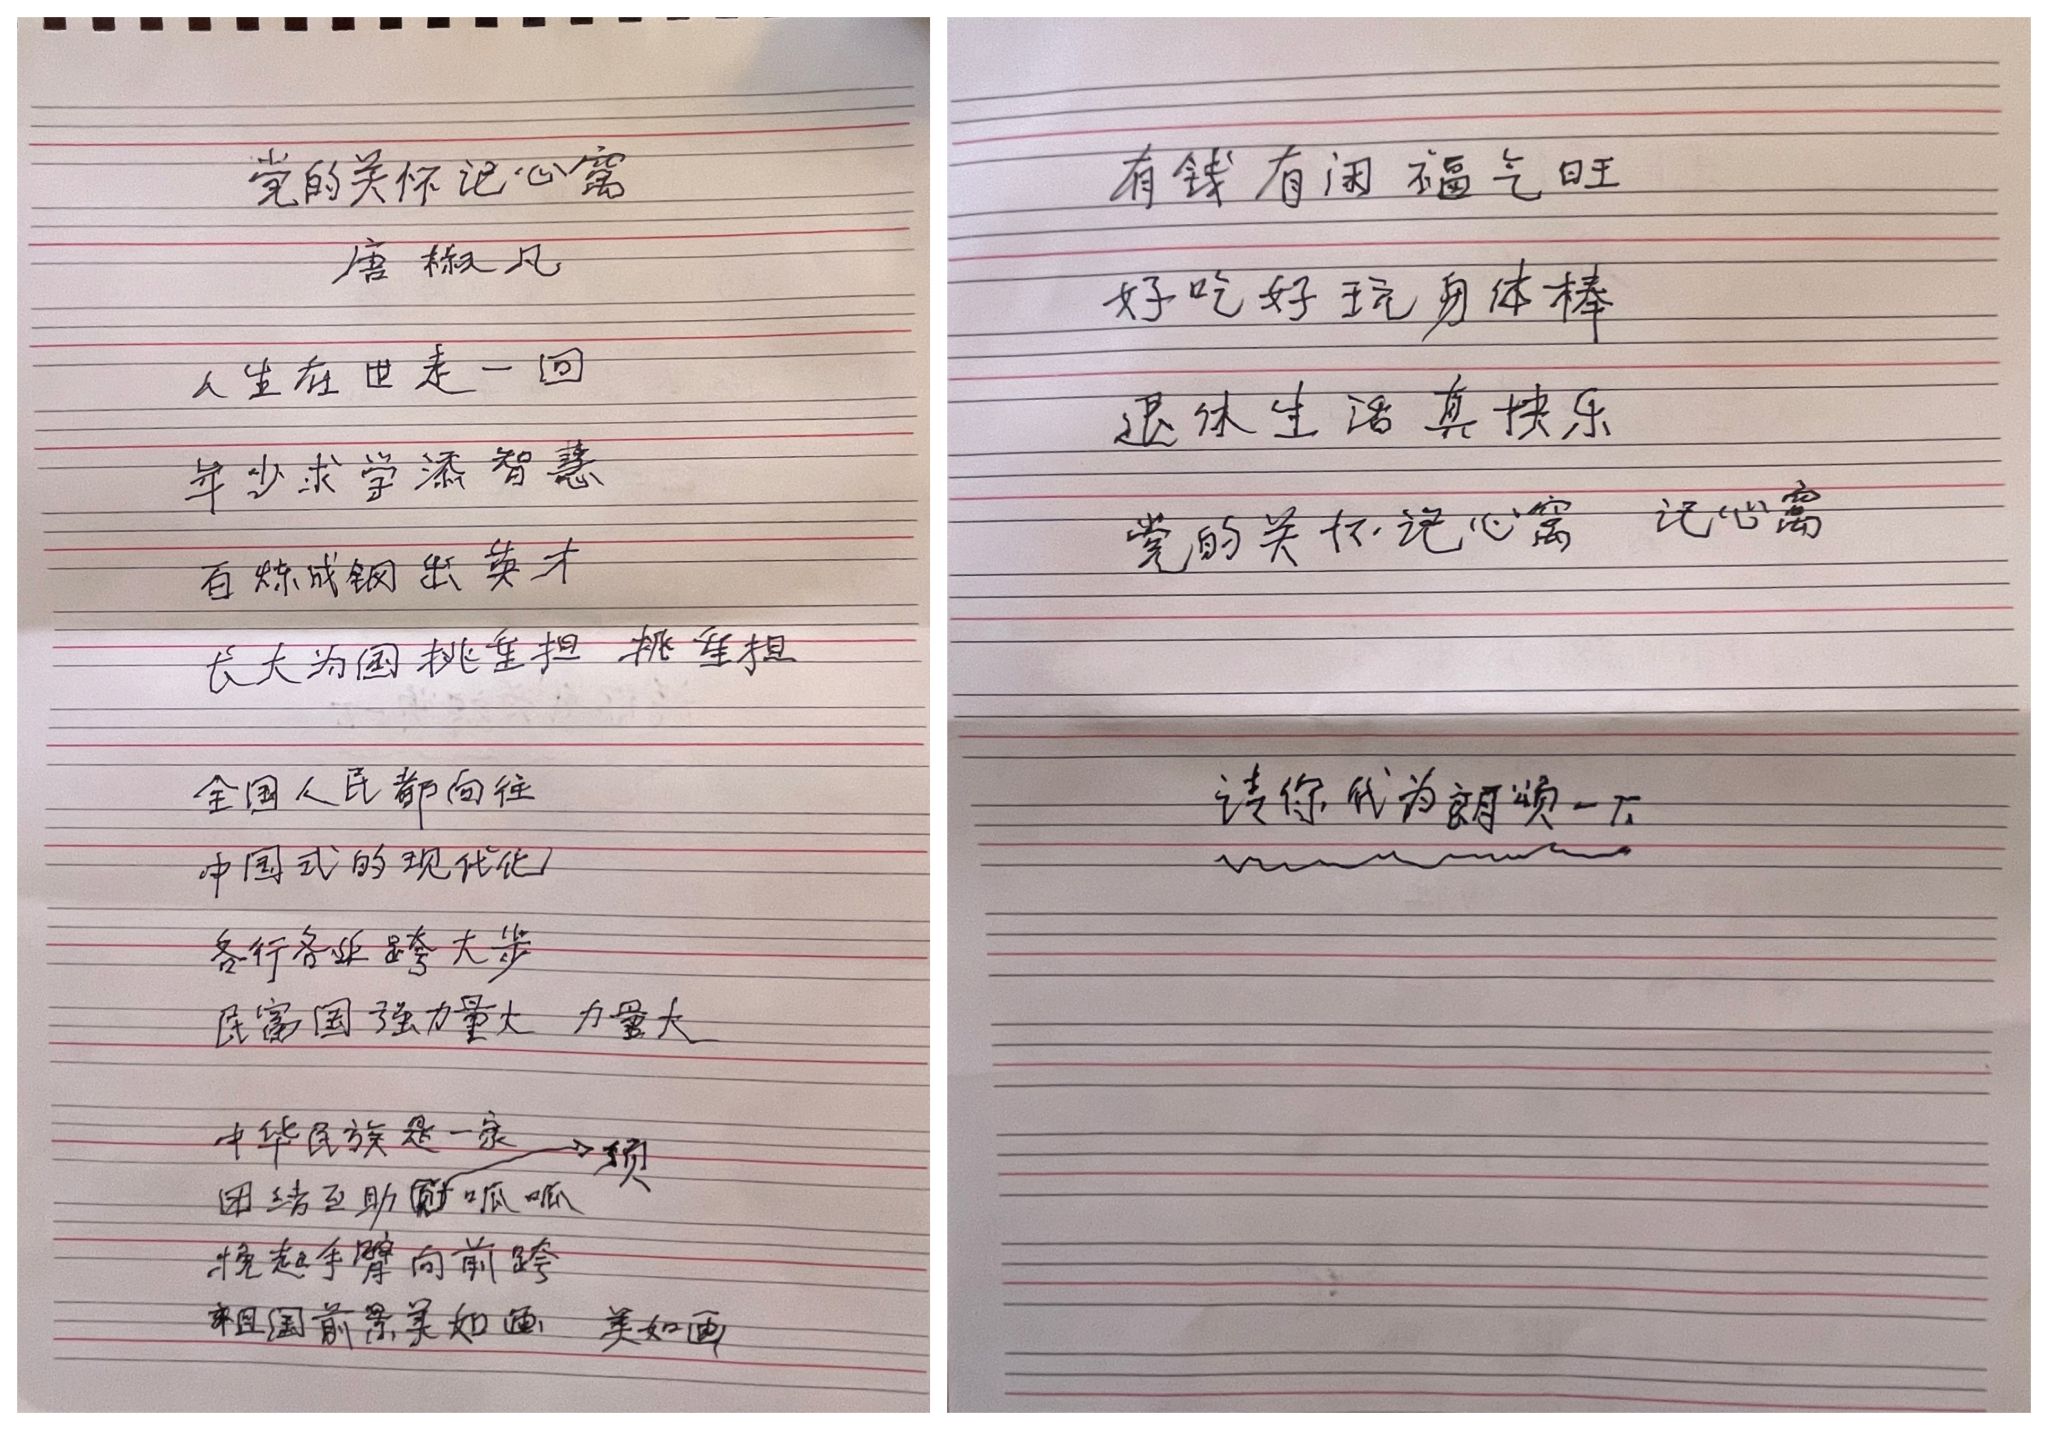 党的关怀记心窝
唐椒凡
人生在世走一回
年少求学添智慧
百炼成钢出英才
长大为国挑重担 挑重担
全国人民都向往
中国式的现代化
各行各业跨大步
民富国强力量大 力量大
中华民族是一家
须
团结互助顶呱呱
挽起手臂向前跨
祖国前景美如画 美如画
有钱有闲福气旺
好吃好玩身体棒
退休生活真快乐
党的关怀记心窝 记心窝
请你代为朗颂一下